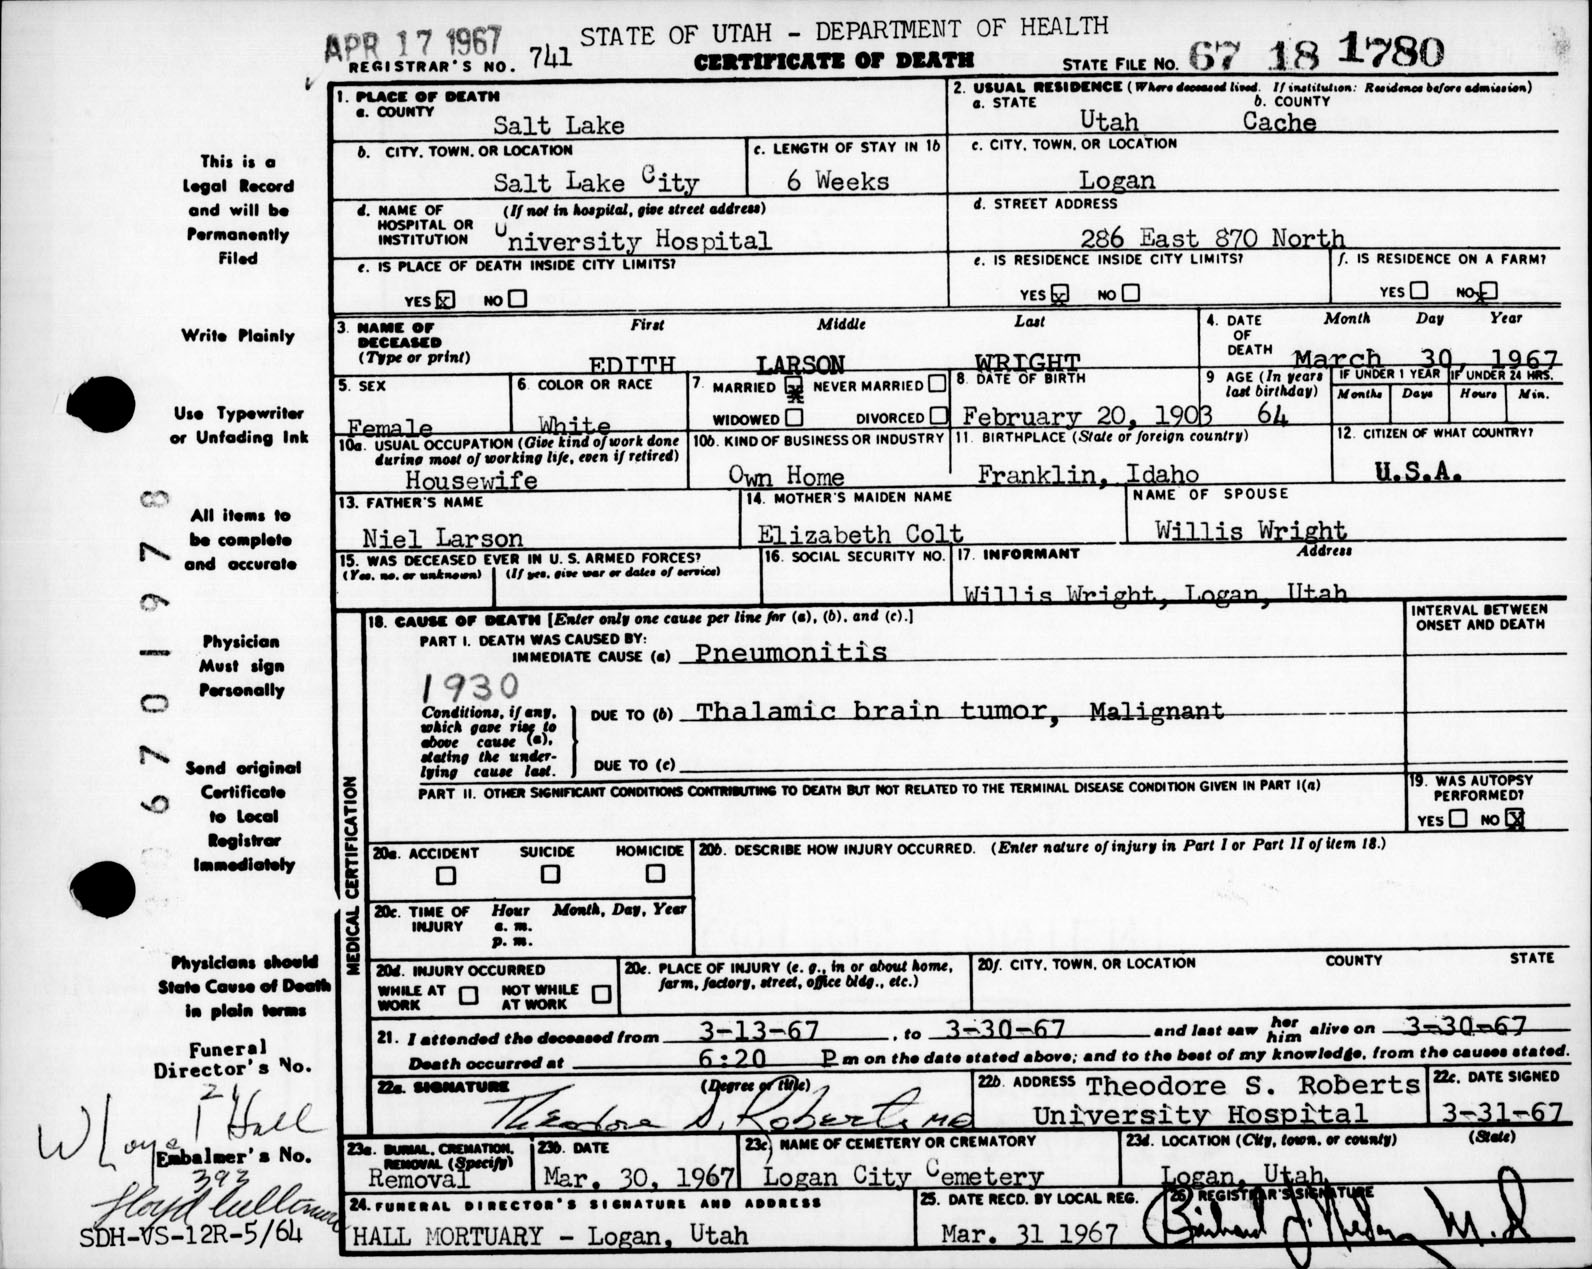 APR 17 1967
STATE OF UTAH - DEPARTMENT OF HEALTH
REGISTRAR'S NO. 741
CERTIFICATE OF DEATH
STATE FILE NO. 67 18 1780
This is a
Legal Record
and will be
Permanently
Filed
Write Plainly
Use Typewriter
or Unfading Ink
All items to
be complete
and accurate
Physician
Must sign
Personally
Send original
Certificate
to Local
Registrar
Immediately
Physicians should
State Cause of Death
in plain terms
6701978
1. PLACE OF DEATH
a. COUNTY
Salt Lake
2. USUAL RESIDENCE (Where deceased lived. If institution: Residence before admission)
a. STATE b. COUNTY
Utah Cache
b. CITY, TOWN, OR LOCATION
Salt Lake City
c. LENGTH OF STAY IN 1b
6 Weeks
c. CITY, TOWN, OR LOCATION
Logan
d. NAME OF HOSPITAL OR INSTITUTION (If not in hospital, give street address)
University Hospital
d. STREET ADDRESS
286 East 870 North
e. IS PLACE OF DEATH INSIDE CITY LIMITS?
YES x NO
e. IS RESIDENCE INSIDE CITY LIMITS?
YES x NO
f. IS RESIDENCE ON A FARM?
YES NO x
3. NAME OF DECEASED (Type or print)
First Middle Last
EDITH LARSON WRIGHT
4. DATE OF DEATH Month Day Year
March 30, 1967
5. SEX
Female
6. COLOR OR RACE
White
7. MARRIED x NEVER MARRIED
WIDOWED DIVORCED
8. DATE OF BIRTH
February 20, 1903
9 AGE (In years last birthday)
64
IF UNDER 1 YEAR
Months Days
IF UNDER 24 HRS.
Hours Min.
10a. USUAL OCCUPATION (Give kind of work done during most of working life, even if retired)
Housewife
10b. KIND OF BUSINESS OR INDUSTRY
Own Home
11. BIRTHPLACE (State or foreign country)
Franklin, Idaho
12. CITIZEN OF WHAT COUNTRY?
U.S.A.
13. FATHER'S NAME
Niel Larson
14. MOTHER'S MAIDEN NAME
Elizabeth Colt
NAME OF SPOUSE
Willis Wright
15. WAS DECEASED EVER IN U. S. ARMED FORCES?
(Yes, no, or unknown) (If yes, give war or dates of service)
16. SOCIAL SECURITY NO.
17. INFORMANT Address
Willis Wright, Logan, Utah
MEDICAL CERTIFICATION
18. CAUSE OF DEATH [Enter only one cause per line for (a), (b), and (c).]
INTERVAL BETWEEN ONSET AND DEATH
PART I. DEATH WAS CAUSED BY:
IMMEDIATE CAUSE (a) Pneumonitis
1930
Conditions, if any, which gave rise to above cause (a), stating the underlying cause last.
DUE TO (b) Thalamic brain tumor, Malignant
DUE TO (c)
PART II. OTHER SIGNIFICANT CONDITIONS CONTRIBUTING TO DEATH BUT NOT RELATED TO THE TERMINAL DISEASE CONDITION GIVEN IN PART I(a)
19. WAS AUTOPSY PERFORMED?
YES NO X
20a. ACCIDENT SUICIDE HOMICIDE
20b. DESCRIBE HOW INJURY OCCURRED. (Enter nature of injury in Part I or Part II of item 18.)
20c. TIME OF INJURY Hour Month, Day, Year
a. m.
p. m.
20d. INJURY OCCURRED
WHILE AT WORK NOT WHILE AT WORK
20e. PLACE OF INJURY (e. g., in or about home, farm, factory, street, office bldg., etc.)
20f. CITY, TOWN, OR LOCATION COUNTY STATE
21. I attended the deceased from 3-13-67, to 3-30-67 and last saw her him alive on 3-30-67
Death occurred at 6:20 P m on the date stated above; and to the best of my knowledge, from the causes stated.
22a. SIGNATURE (Degree or title)
Theodore S. Roberts MD
22b. ADDRESS Theodore S. Roberts
University Hospital
22c. DATE SIGNED
3-31-67
23a. BURIAL, CREMATION, REMOVAL (Specify)
Removal
23b. DATE
Mar. 30, 1967
23c. NAME OF CEMETERY OR CREMATORY
Logan City Cemetery
23d. LOCATION (City, town, or county) (State)
Logan, Utah
24. FUNERAL DIRECTOR'S SIGNATURE AND ADDRESS
HALL MORTUARY - Logan, Utah
25. DATE RECD. BY LOCAL REG.
Mar. 31 1967
26. REGISTRAR'S SIGNATURE
M.D.
Funeral
Director's No.
W Loye Hall
Embalmer's No.
393
SDH-VS-12R-5/64